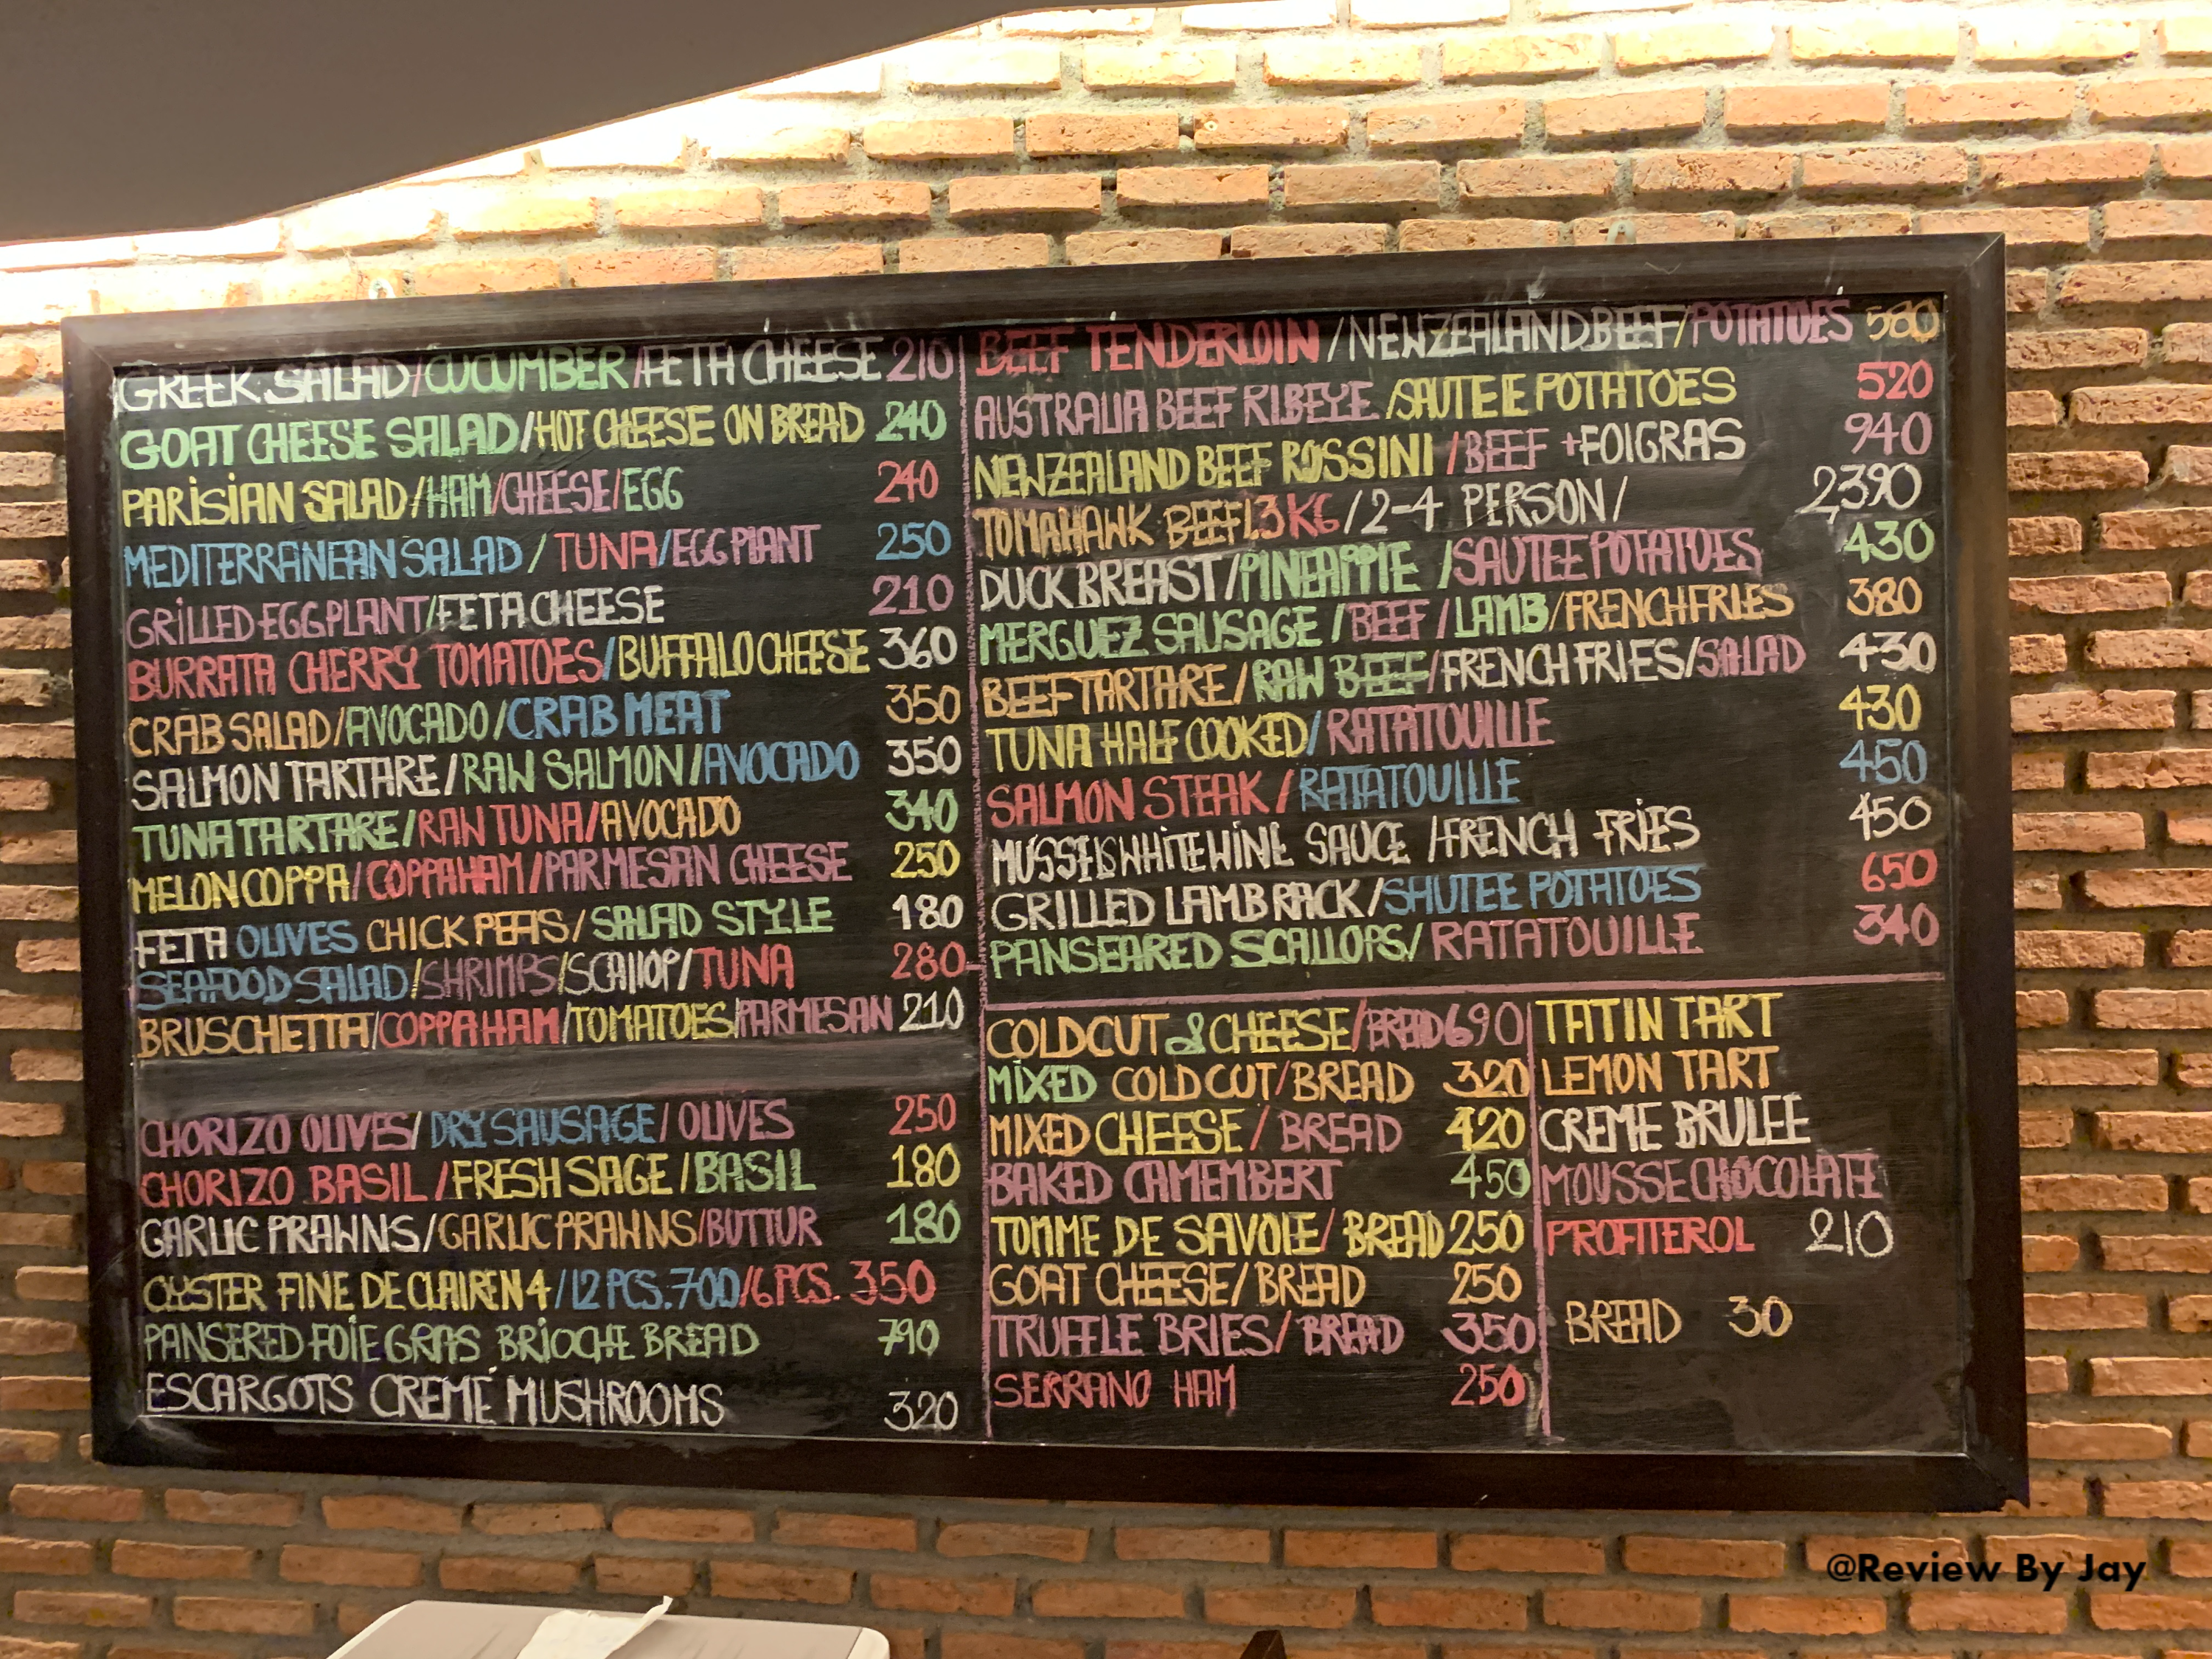 GREEK SALAD/CUCUMBER/FETA CHEESE 210
GOAT CHEESE SALAD/HOT CHEESE ON BREAD 240
PARISIAN SALAD/HAM/CHEESE/EGG 240
MEDITERRANEAN SALAD/TUNA/EGG PLANT 250
GRILLED EGGPLANT/FETA CHEESE 210
BURRATA CHERRY TOMATOES/BUFFALO CHEESE 360
CRAB SALAD/AVOCADO/CRAB MEAT 350
SALMON TARTARE/RAW SALMON/AVOCADO 350
TUNA TARTARE/RAW TUNA/AVOCADO 340
MELON COPPA/COPPA HAM/PARMESAN CHEESE 250
FETA OLIVES CHICK PEAS/SALAD STYLE 180
SEAFOOD SALAD/SHRIMPS/SCALLOP/TUNA 280
BRUSCHETTA/COPPA HAM/TOMATOES/PARMESAN 210
CHORIZO OLIVES/DRY SAUSAGE/OLIVES 250
CHORIZO BASIL/FRESH SAGE/BASIL 180
GARLIC PRAWNS/GARLIC PRAWNS/BUTTUR 180
OYSTER FINE DE CLAIREN4/12 PCS.700/6 PCS. 350
PANSERED FOIE GRAS BRIOCHE BREAD 790
ESCARGOTS CREME MUSHROOMS 320
BEEF TENDERLOIN/NEWZEALAND BEEF/POTATOES 580
AUSTRALIA BEEF RIBEYE/SAUTEE POTATOES 520
NEWZEALAND BEEF ROSSINI/BEEF +FOIGRAS 940
TOMAHAWK BEEF 1.3 KG/2-4 PERSON/ 2,390
DUCK BREAST/PINEAPPLE/SAUTEE POTATOES 430
MERGUEZ SAUSAGE/BEEF/LAMB/FRENCH FRIES 380
BEEF TARTARE/RAW BEEF/FRENCH FRIES/SALAD 430
TUNA HALF COOKED/RATATOUILLE 430
SALMON STEAK/RATATOUILLE 450
MUSSELS WHITE WINE SAUCE/FRENCH FRIES 450
GRILLED LAMB RACK/SHUTEE POTATOES 650
PANSEARED SCALLOPS/RATATOUILLE 340
COLDCUT & CHEESE/BREAD 690
MIXED COLD CUT/BREAD 320
MIXED CHEESE/BREAD 420
BAKED CAMEMBERT 450
TOMME DE SAVOIE/BREAD 250
GOAT CHEESE/BREAD 250
TRUFFLE BRIES/BREAD 350
SERRANO HAM 250
TATIN TART
LEMON TART
CREME BRULEE
MOUSSE CHOCOLATE
PROFITEROL 210
BREAD 30
@Review By Jay